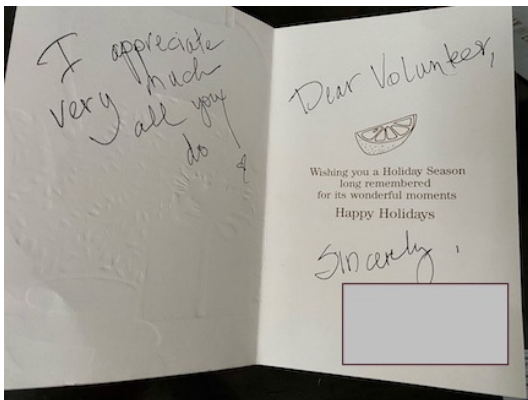 I appreciate
very much
all you
do
Dear Volunteer,
Wishing you a Holiday Season
long remembered
for its wonderful moments
Happy Holidays
Sincerely,